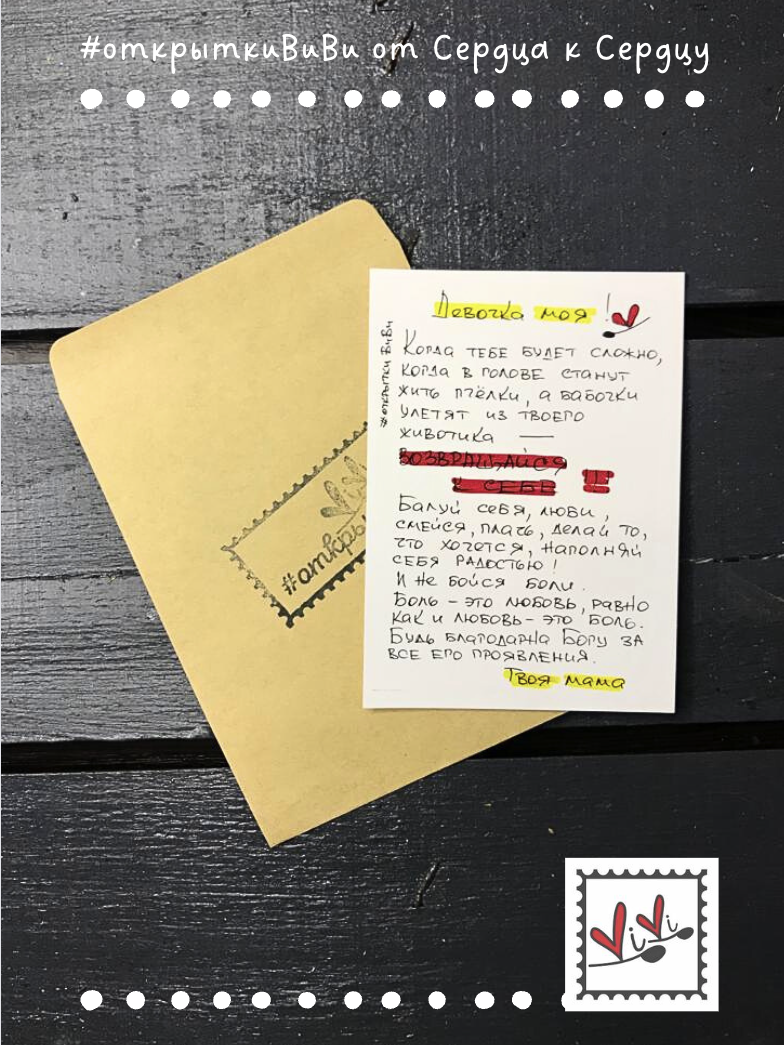 #открыткиВиВи от Сердца к Сердцу
Девочка моя!
#открытки ВиВи
Когда тебе будет сложно,
когда в голове станут
жить пчёлки, а бабочки
улетят из твоего
животика —
ВОЗВРАЩАЙСЯ
К СЕБЕ
Балуй себя, люби,
смейся, плачь, делай то,
что хочется, наполняй
себя радостью!
И не бойся боли.
Боль – это любовь, равно
как и любовь – это боль.
Будь благодарна Богу за
все его проявления.
Твоя мама
ViVi
#откры
ViVi